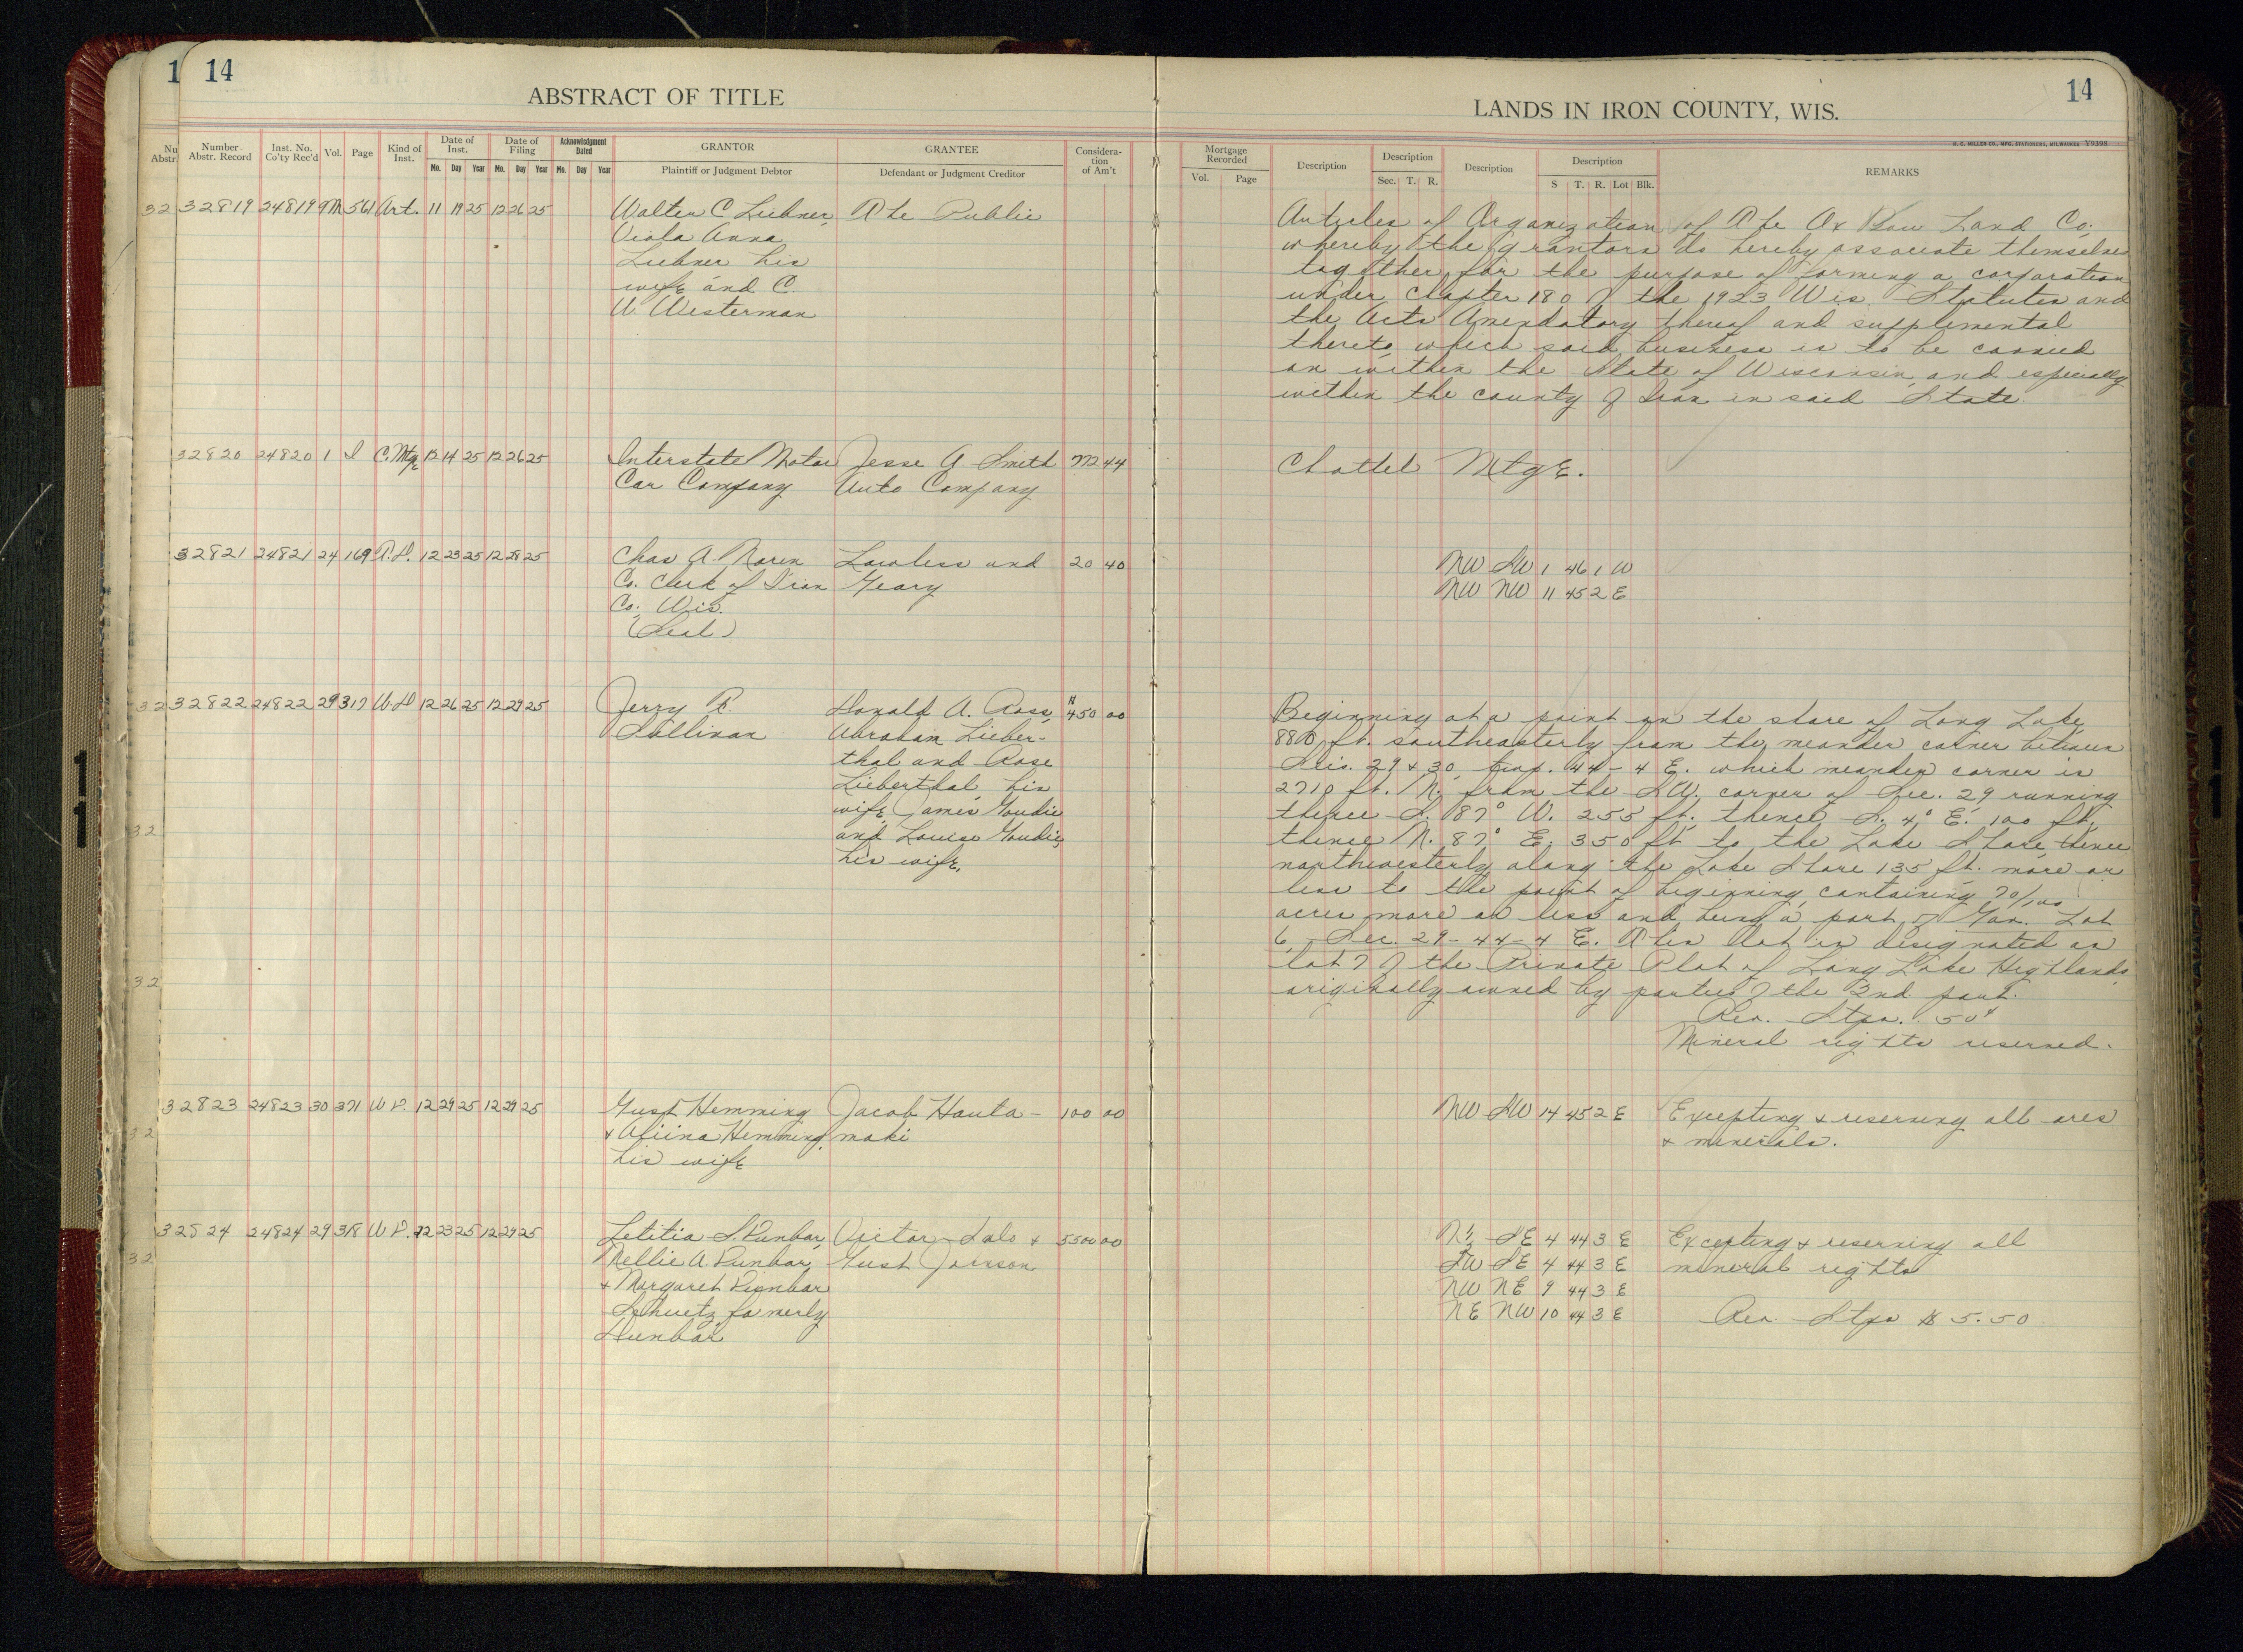 1 14
ABSTRACT OF TITLE
LANDS IN IRON COUNTY, WIS.
14
H. C. MILLER CO., MFG. STATIONERS, MILWAUKEE V9398
Nu Abstr. Number Abstr. Record Inst. No. Co'ty Rec'd Vol. Page Kind of Inst. Date of Inst. Mo. Day Year Date of Filing Mo. Day Year Acknowledgment Dated Mo. Day Year GRANTOR Plaintiff or Judgment Debtor GRANTEE Defendant or Judgment Creditor Considera-tion of Am't
Mortgage Recorded Vol. Page Description Description Sec. T. R. Description Description S T. R. Lot Blk. REMARKS
32 32819 24819 9M 561 Art. 11 19 25 12 26 25 Walter C Liebner, The Public
Viola Anna
Liebner his
wife and C.
W. Westerman
Articles of Organization of The Ox Bow Land Co.
whereby the grantors do hereby associate themselves
together for the purpose of forming a corporation
under Chapter 180 of the 1923 Wis. Statutes and
the Acts Amendatory thereof and supplemental
thereto, which said business is to be carried
on within the State of Wisconsin, and especially
within the county of Iron in said State.
32820 24820 1 I C. Mtge 12 14 25 12 26 25 Interstate Motor Jesse A Smith 772 44 Chattel Mtge.
Car Company Auto Company
32821 24821 24 169 T.D. 12 23 25 12 28 25 Chas A. Noren Lawless and 20 40 NW SW 1 46 1 W
Co. Clerk of Iron Geary NW NW 11 45 2 E
Co. Wis.
(Seal)
32 32822 24822 29 317 W.D 12 26 25 12 29 25 Jerry R. Donald A. Ross, 450 00
Sullivan Abraham Lieber-
thal and Rose
Lieberthal, his
wife, James Goudie
and Louise Goudie,
his wife.
Beginning at a point on the shore of Long Lake,
ft. southeasterly from the meander corner between
Secs. 29 & 30, twp. 44-4 E. which meander corner is
2710 ft. N. from the S.W. corner of Sec. 29 running
thence S. 87° W. 255 ft. thence S. 4° E. 100 ft.
thence N. 87° E. 350 ft to the Lake Shore, thence
northwesterly along the Lake Shore 135 ft. more or
less to the point of beginning, containing 70/100
acres more or less and being a part of Gov. Lot
6, Sec. 29-44-4 E. This lot is designated as
lot 7 of the Private Plat of Long Lake Highlands
originally owned by parties of the 2nd part.
Rev. Stps. 50¢
Mineral rights reserved.
32
32
32823 24823 30 371 W D. 12 29 25 12 29 25 Gust Hemming Jacob Hauta- 100 00 NW SW 14 45 2 E Excepting & reserving all ores
32 & Aliina Hemming, maki & minerals.
his wife
32824 24824 29 318 W D. 12 23 25 12 29 25 Letitia S. Dunbar, Victor Salo & 5500 00 N½ SE 4 44 3 E Excepting & reserving all
32 Nellie A. Dunbar, Gust Johnson SW SE 4 44 3 E mineral rights
& Margaret Dunbar NW NE 9 44 3 E
Schuetz, formerly NE NW 10 44 3 E Rev. Stps $5.50
Dunbar